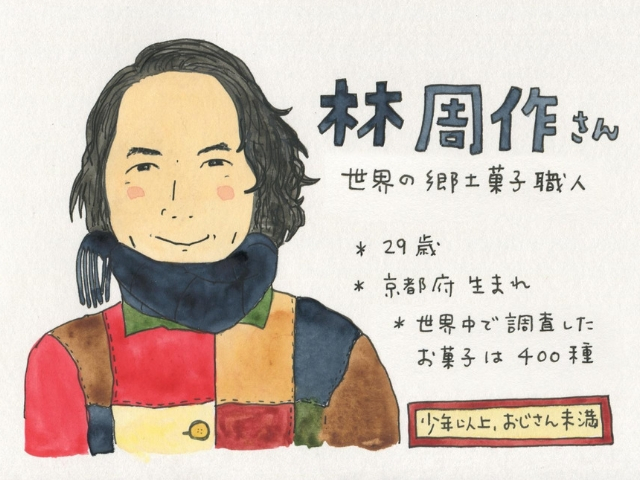 林周作さん
世界の郷土菓子職人
* 29歳
* 京都府生まれ
* 世界中で調査した
お菓子は400種
少年以上,おじさん未満